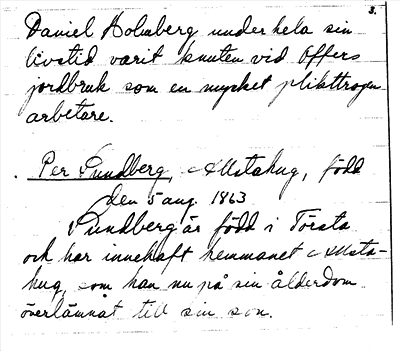 3.
Daniel Holmberg under hela sin
livstid varit knuten vid Offers
jordbruk som en mycket plikttrogen
arbetare.
Per Sundberg, Allstahug, född
den 5 aug. 1863
Sundberg är född i Torsta
och har innehaft hemmanet i Allsta-
hug, som han nu på sin ålderdom
överlämnat till sin son.